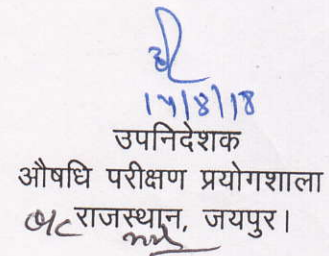 उपनिदेशक
औषधि परीक्षण प्रयोगशाला
राजस्थान, जयपुर।